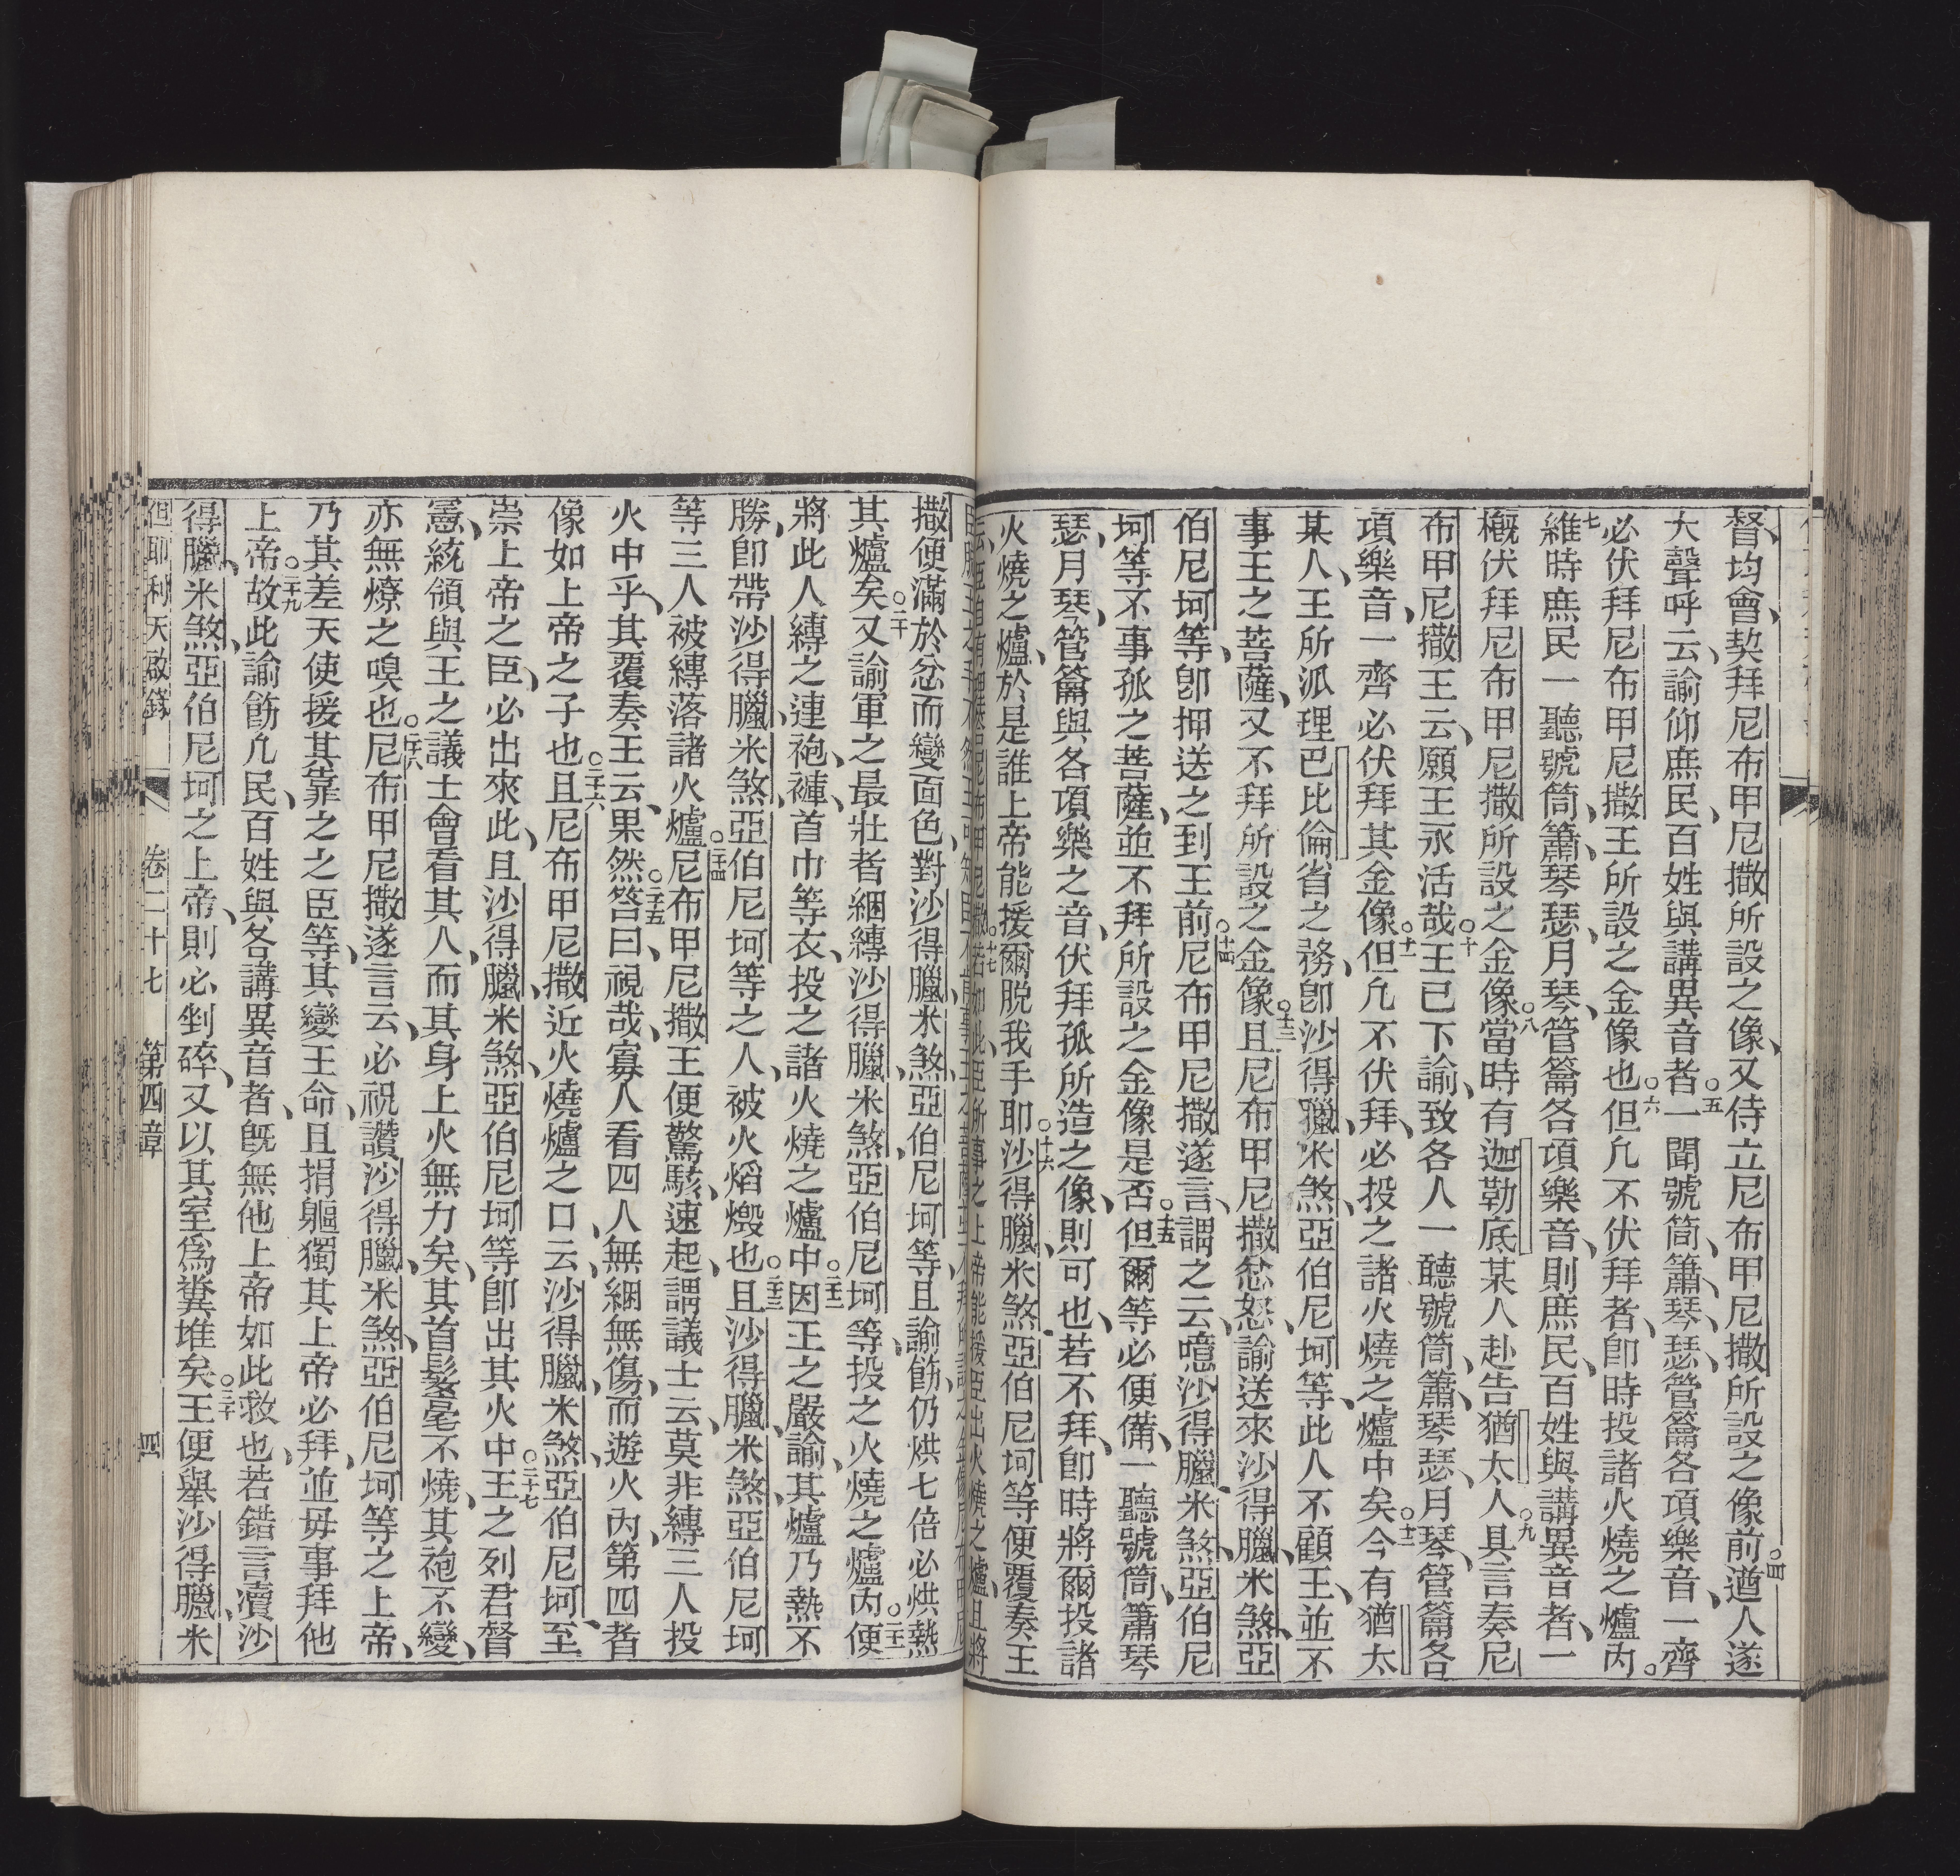 督、均會、契拜尼布甲尼撒所設之像、又侍立尼布甲尼撒所設之像前○四遒人遂
大聲呼云、諭仰庶民、百姓與講異音者○五一聞號筒、簫、琴、瑟、管籥各項樂音、一齊
必伏拜尼布甲尼撒王所設之金像也○六但凡不伏拜者、卽時投諸火燒之爐內。
七維時庶民一聽號筒、簫、琴、瑟、月琴、管籥各項樂音、則庶民、百姓與講異音者、一
概伏拜尼布甲尼撒所設之金像○八當時有迦勒底某人赴告猶太人○九具言奏尼
布甲尼撒王云、願王永活哉○十王已下諭、致各人一聽號筒、簫、琴、瑟、月琴、管籥各
項樂音、一齊必伏拜其金像○十一但凡不伏拜、必投之諸火燒之爐中矣○十二今有猶太
某人、王所派理巴比倫省之務、卽沙得臘、米煞、亞伯尼坷等、此人不顧王、並不
事王之菩薩、又不拜所設之金像○十三且尼布甲尼撒忿怒、諭送來沙得臘、米煞、亞
伯尼坷等、卽押送之到王前○十四尼布甲尼撒遂言、謂之云、噫沙得臘、米煞、亞伯尼
坷等不事孤之菩薩、並不拜所設之金像是否○十五但爾等必便備、一聽號筒、簫琴
瑟、月琴、管籥與各項樂之音、伏拜孤所造之像、則可也、若不拜、卽時將爾投諸
火燒之爐、於是誰上帝能援爾脫我手耶○十六沙得臘、米煞、亞伯尼坷等便覆奏王
撒便滿於忿而變面色對沙得臘、米煞、亞伯尼坷等、且諭飭、仍烘七倍必烘熱
其爐矣○二十又諭軍之最壯者綑縛沙得臘、米煞、亞伯尼坷等、投之火燒之爐內○二十一便
將此人縛之連、袍、褲、首巾等衣、投之諸火燒之爐中○二十二因王之嚴諭、其爐乃熱不
勝、卽帶沙得臘、米煞、亞伯尼坷等之人、被火熖燬也○二十三且沙得臘、米煞、亞伯尼坷
等三人被縛落諸火爐○二十四尼布甲尼撒王便驚駭、速起、謂議士云、莫非縛三人投
火中乎、其覆奏王云、果然○二十五答曰、視哉、寡人看四人無綑無傷、而遊火內、第四者
像如上帝之子也○二十六且尼布甲尼撒近火燒爐之口、云、沙得臘、米煞、亞伯尼坷、至
崇上帝之臣、必出來此、且沙得臘、米煞、亞伯尼坷等卽出其火中○二十七王之列君督
憲、統領與王之議士會看其人、而其身上火無力矣、其首髮毫不燒、其袍不變、
亦無燎之嗅也○二十八尼布甲尼撒遂言云、必祝讚沙得臘、米煞、亞伯尼坷等之上帝、
乃其差天使援其靠之之臣等、其變王命、且捐軀獨其上帝必拜、並毋事拜他
上帝○二十九故此諭飭凡民、百姓與各講異音者、旣無他上帝如此救也、若錯言瀆沙
得臘、米煞、亞伯尼坷之上帝、則必剉碎、又以其室爲糞堆矣○三十王便舉沙得臘、米
但耶利天啟錄 卷二十七 第四章 四